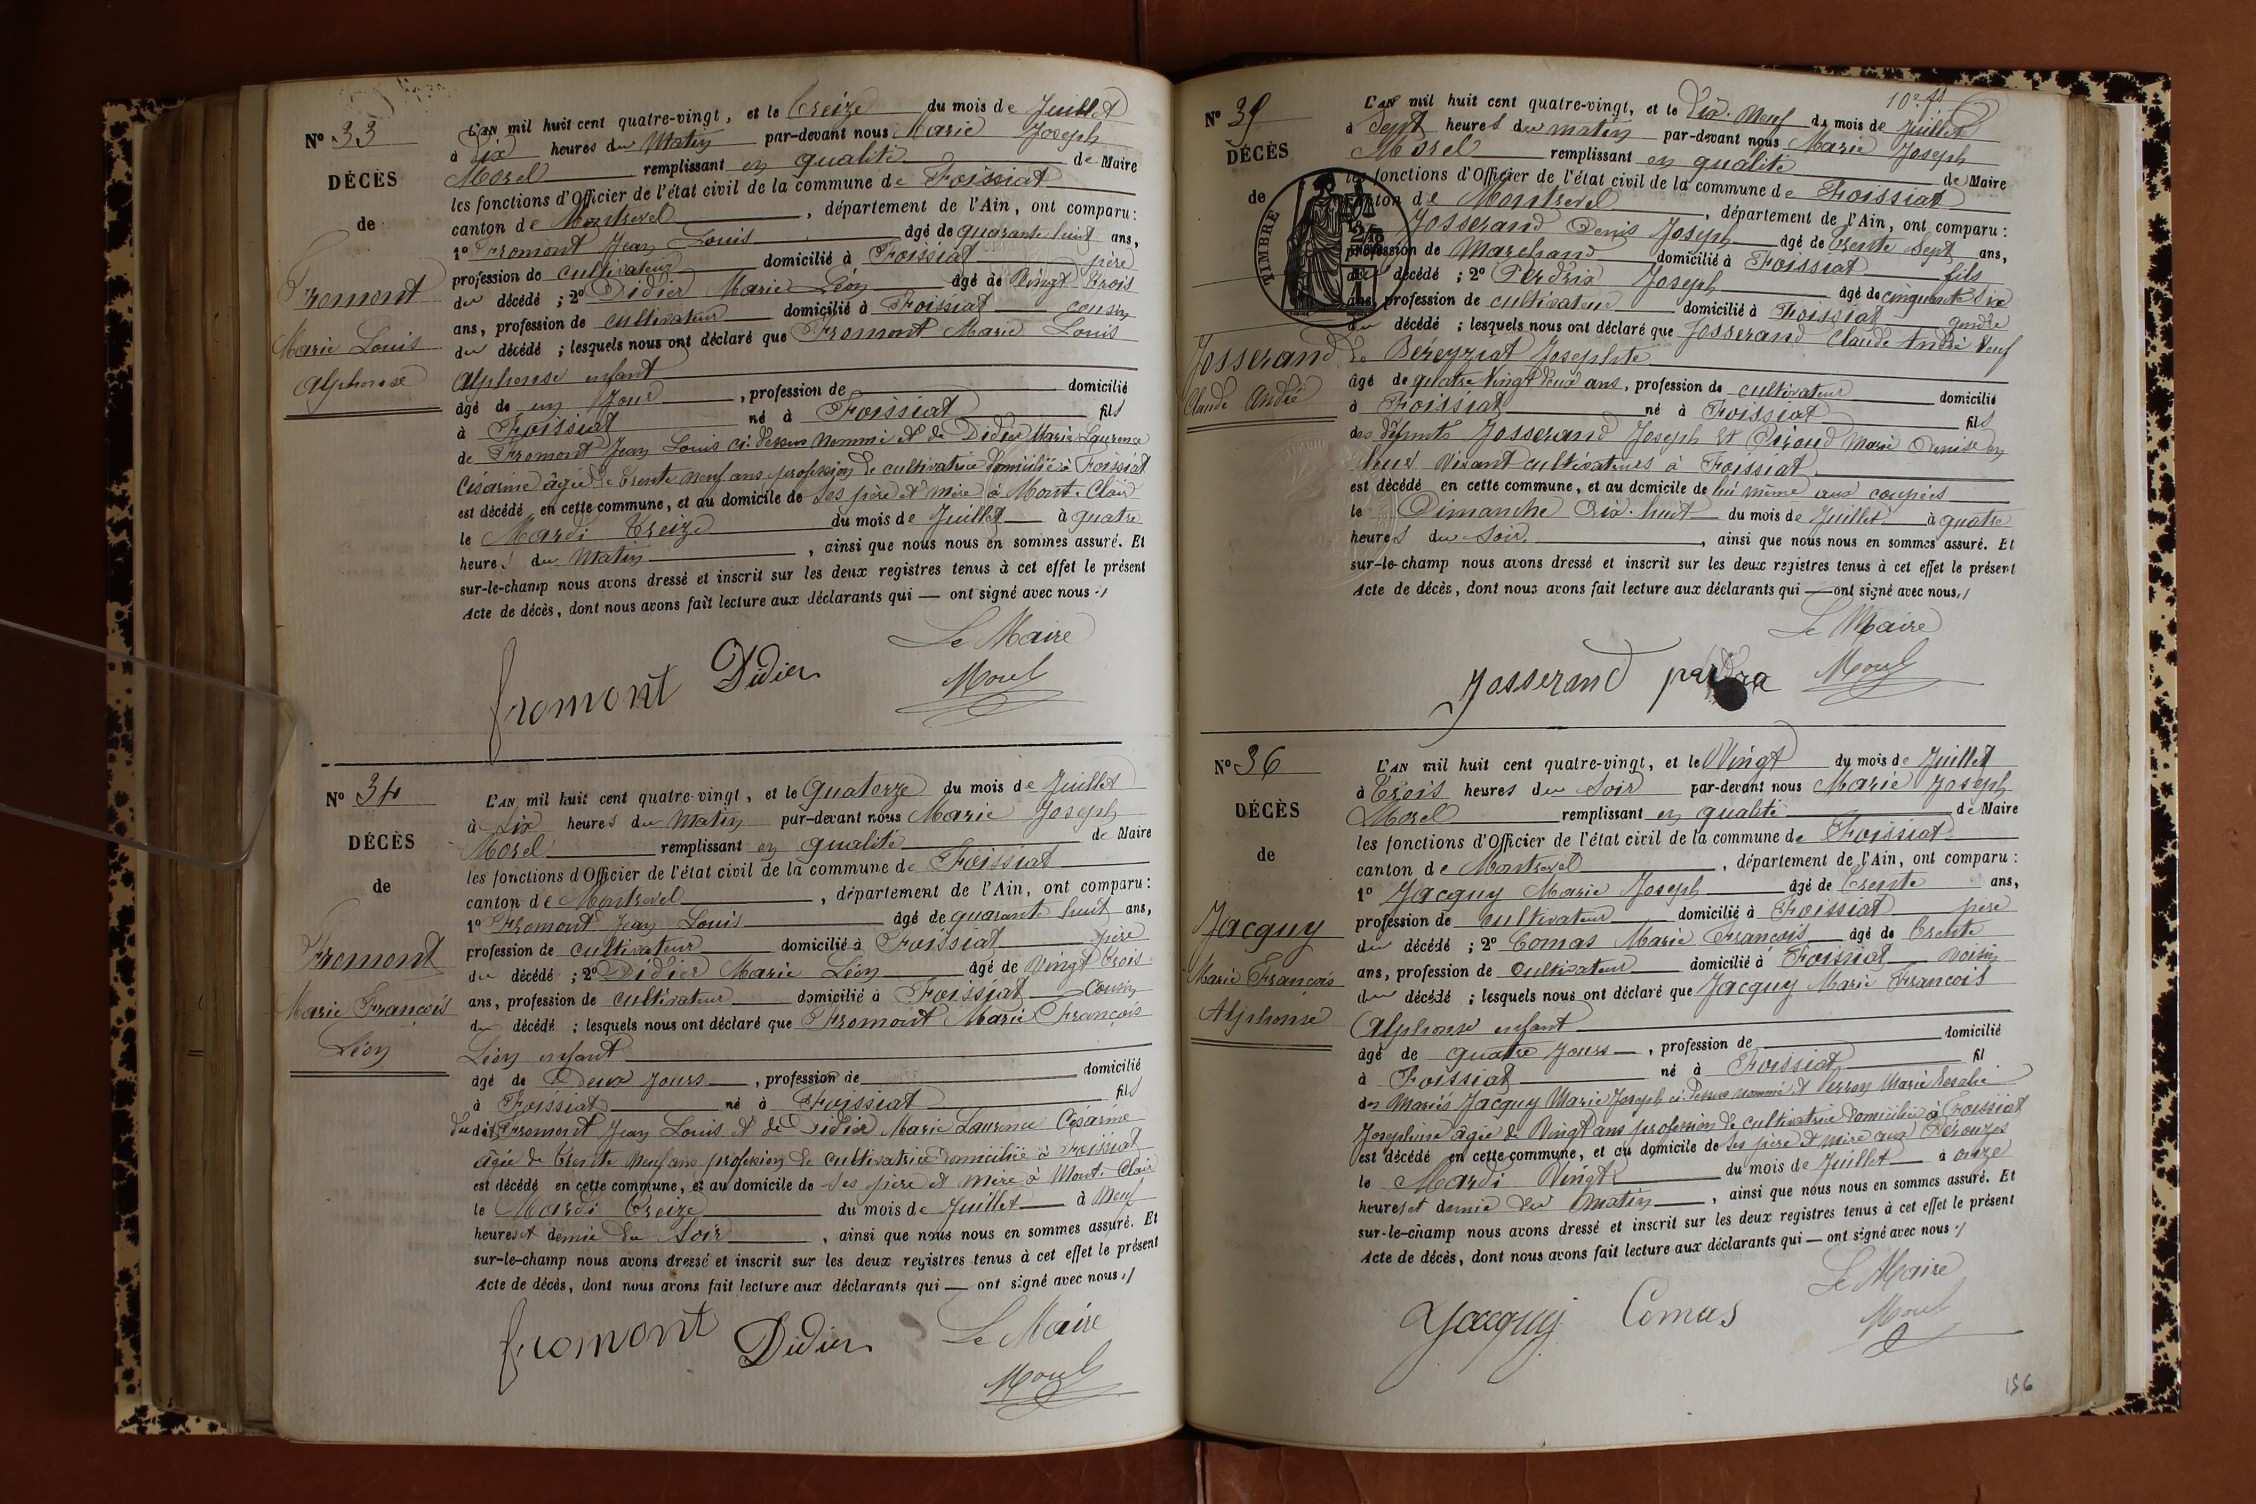 N° 33
DÉCÈS
de
Fromont
Marie Louis
Alphonse
L'AN mil huit cent quatre-vingt, et le treize du mois de Juillet
à Dix heures du Matin par-devant nous Marie Joseph
Morel remplissant en qualité de Maire
les fonctions d'Officier de l'état civil de la commune de Foissiat
canton de Montrevel, département de l'Ain, ont comparu:
1° Fromont Jean Louis âgé de quarante huit ans,
profession de cultivateur domicilié à Foissiat père
du décédé ; 2° Didier Marie Léon âgé de Vingt trois
ans, profession de cultivateur domicilié à Foissiat cousin
du décédé ; lesquels nous ont déclaré que Fromont Marie Louis
Alphonse enfant
âgé de un jour, profession de domicilié
à Foissiat né à Foissiat fils
de Fromont Jean Louis ci-dessus nommé et de Didier Marie Laurence
Césarine âgée de trente neuf ans profession de cultivatrice domiciliée à Foissiat
est décédé en cette commune, et au domicile de ses père et mère à Mont-Clair
le Mardi treize du mois de Juillet à quatre
heures du Matin, ainsi que nous nous en sommes assuré. Et
sur-le-champ nous avons dressé et inscrit sur les deux registres tenus à cet effet le présent
Acte de décès, dont nous avons fait lecture aux déclarants qui — ont signé avec nous ./
Le Maire
fromont Didier Morel
N° 34
DÉCÈS
de
Fromont
Marie François
Léon
L'AN mil huit cent quatre-vingt, et le quatorze du mois de Juillet
à Six heures du Matin par-devant nous Marie Joseph
Morel remplissant en qualité de Maire
les fonctions d'Officier de l'état civil de la commune de Foissiat
canton de Montrevel, département de l'Ain, ont comparu:
1° Fromont Jean Louis âgé de quarante huit ans,
profession de cultivateur domicilié à Foissiat père
du décédé ; 2° Didier Marie Léon âgé de Vingt trois
ans, profession de cultivateur domicilié à Foissiat Cousin
du décédé ; lesquels nous ont déclaré que Fromont Marie François
Léon enfant
âgé de Deux jours, profession de domicilié
à Foissiat né à Foissiat fils
dudit Fromont Jean Louis et de Didier Marie Laurence Césarine
âgée de trente neuf ans profession de cultivatrice domiciliée à Foissiat
est décédé en cette commune, et au domicile de ses père et mère à Mont-Clair
le Mardi treize du mois de Juillet à Neuf
heures et demie du Soir, ainsi que nous nous en sommes assuré. Et
sur-le-champ nous avons dressé et inscrit sur les deux registres tenus à cet effet le présent
Acte de décès, dont nous avons fait lecture aux déclarants qui — ont signé avec nous ./
Le Maire
fromont Didier Morel
10e f
N° 35
DÉCÈS
de
TIMBRE
Josserand
Claude André
L'AN mil huit cent quatre-vingt, et le Dix-Neuf du mois de Juillet
à Sept heures du matin par-devant nous Marie Joseph
Morel remplissant en qualité de Maire
les fonctions d'Officier de l'état civil de la commune de Foissiat
canton de Montrevel, département de l'Ain, ont comparu:
Josserand Denis Joseph âgé de trente Sept ans,
profession de Marchand domicilié à Foissiat fils
du décédé ; 2° Perdrix Joseph âgé de cinquante Six
ans, profession de cultivateur domicilié à Foissiat gendre
du décédé ; lesquels nous ont déclaré que Josserand Claude André Veuf
de Béreyziat Josephte
âgé de quatre Vingt deux ans, profession de cultivateur domicilié
à Foissiat né à Foissiat fils
des défunts Josserand Joseph et Piroud Marie Denise en
leur Vivant cultivateurs à Foissiat
est décédé en cette commune, et au domicile de lui même aux coupées
le Dimanche Dix-huit du mois de Juillet à quatre
heures du Soir, ainsi que nous nous en sommes assuré. Et
sur-le-champ nous avons dressé et inscrit sur les deux registres tenus à cet effet le présent
Acte de décès, dont nous avons fait lecture aux déclarants qui — ont signé avec nous ./
Le Maire
Josserand Morel
N° 36
DÉCÈS
de
Jacquy
Marie François
Alphonse
L'AN mil huit cent quatre-vingt, et le Vingt du mois de Juillet
à trois heures du Soir par-devant nous Marie Joseph
Morel remplissant en qualité de Maire
les fonctions d'Officier de l'état civil de la commune de Foissiat
canton de Montrevel, département de l'Ain, ont comparu:
1° Jacquy Marie Joseph âgé de trente ans,
profession de cultivateur domicilié à Foissiat père
du décédé ; 2° Comas Marie François âgé de trente
ans, profession de Cultivateur domicilié à Foissiat voisin
du décédé ; lesquels nous ont déclaré que Jacquy Marie François
Alphonse enfant
âgé de quatre jours, profession de domicilié
à Foissiat né à Foissiat fil
des Mariés Jacquy Marie Joseph ci-dessus nommé et Perron Marie Rosalie
Josephine âgée de Vingt ans profession de cultivatrice domiciliée à Foissiat
est décédé en cette commune, et au domicile de ses père et mère aux Pérouzes
le Mardi Vingt du mois de Juillet à onze
heures et demie du Matin, ainsi que nous nous en sommes assuré. Et
sur-le-champ nous avons dressé et inscrit sur les deux registres tenus à cet effet le présent
Acte de décès, dont nous avons fait lecture aux déclarants qui — ont signé avec nous ./
Le Maire
Jacquy Comas Morel
156